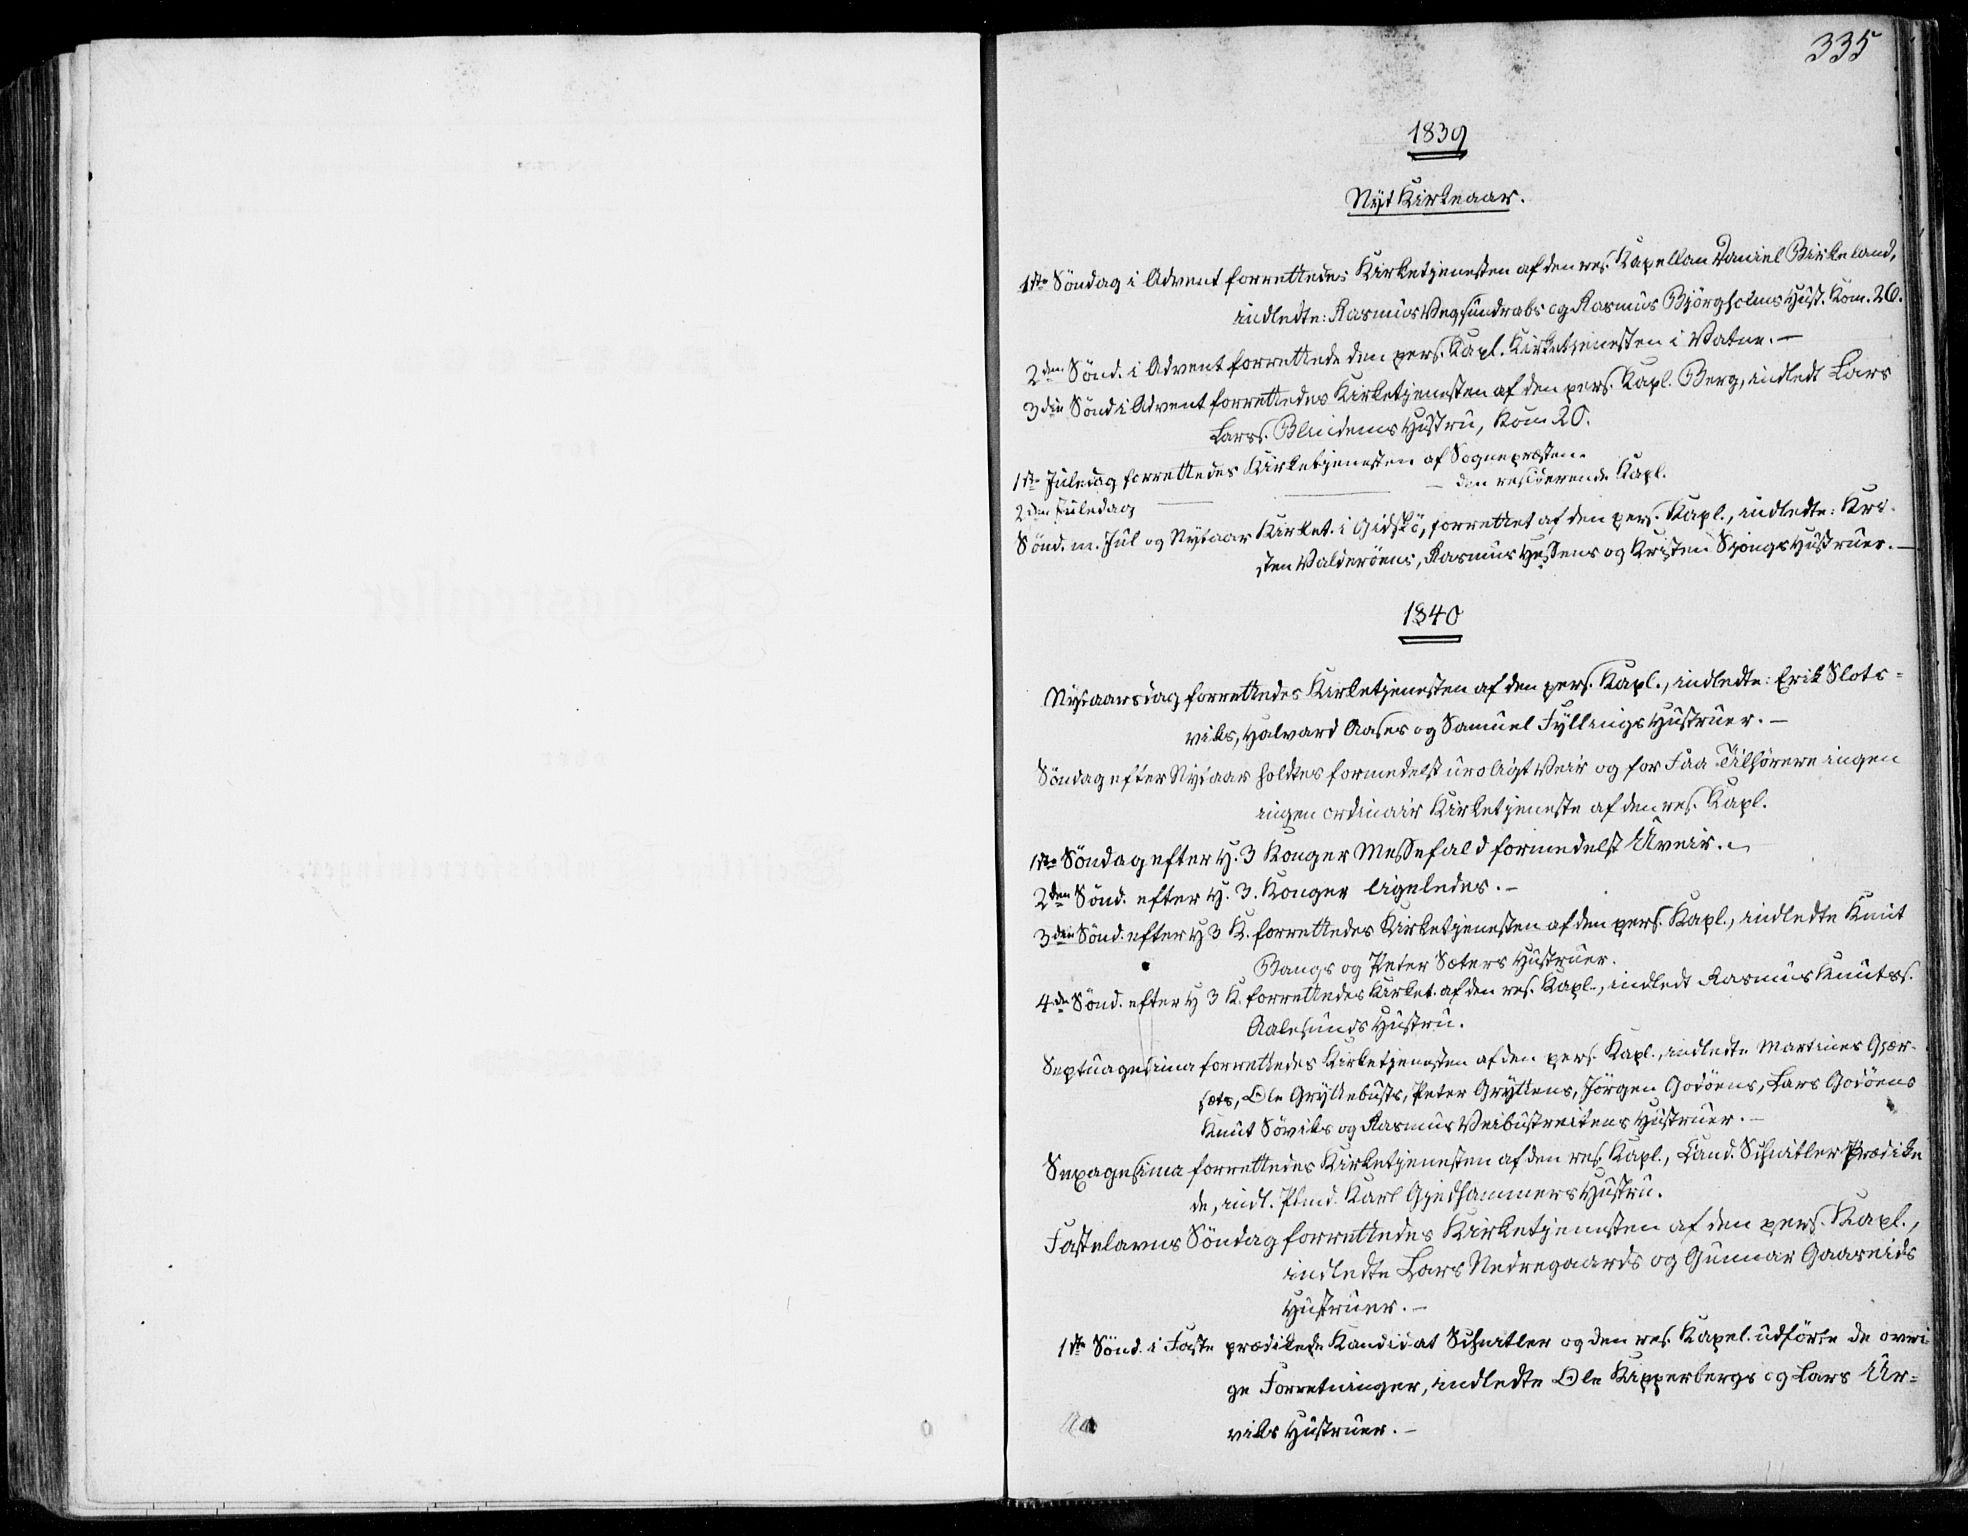 335
1839
Nyt Kirkeaar.
1ste Söndag i Advent forrettedes Kirketjenesten af den res. Kapellan Daniel Birkeland,
indledte: Rasmus Vegsundrabs og Rasmus Bjørgholms Hust. Kom. 26.
2den Sönd. i Advent forrettede den pers. Kapl. Kirketjenesten i Vatne. –
3die Sönd i Advent forrettedes Kirketjenesten af den pers. Kapl. Berg, indledt Lars
Larss. Blindems Hustru, Kom 20.
1ste Juledag forrettedes Kirketjenesten af Sognepræsten.
2den Juledag — — – den residerende Kapl.
Sönd. m. Jul og Nytaar Kirket. i Gidskö, forrettet af den pers. Kapl., indledte: Kri-
sten Valderöens, Rasmus Hessens og Kristen Spjongs Hustruer. –
1840
Nytaarsdag forrettedes Kirketjenesten af den pers. Kapl., indledte: Erik Slots=
viks, Halvard Aases og Samuel Fyllings Hustruer. –
Söndag efter Nytaar holdtes formedelst uroligt Veir og for Faa Tilhörere ingen
ingen ordinair Kirketjeneste af den res. Kapl.
1ste Söndag efter H. 3 Konger Messefald formedelst Uveir. –
2den Sönd. efter H. 3. Konger ligeledes. –
3die Sönd. efter H 3 K. forrettedes Kirketjenesten af den pers. Kapl., indledte Knut
Bangs og Peter Sæters Hustruer.
4de Sönd. efter H 3 K. forrettedes Kirket. af den res. Kapl., indledt Rasmus Knutss.
Aalesunds Hustru.
Septuagesima forrettedes Kirketjenesten af den pers. Kapl., indledte Martines Gjær-
sæts, Ole Gryttebusts, Peter Gryttens, Jörgen Godöens, Lars Godöens
Knut Söviks og Rasmus Veibustreitens Hustruer. –
Sexagesima forrettedes Kirketjenesten af den res. Kapl., Cand. Schnitler Prædike
de, indl. Plmd. Karl Gjedhammers Hustru.
Fastelavns Söndag forrettedes Kirketjenesten af den pers. Kapl.,
indledte Lars Nedregaards og Gunnar Gaaseids
Hustruer. –
1ste Sönd. i Faste prædikede Kandidat Schnitler og den res. Kapel. udförte de övri
ge Forretninger, indledte Ole Kipperbergs og Lars Ur=
viks Hustruer. –